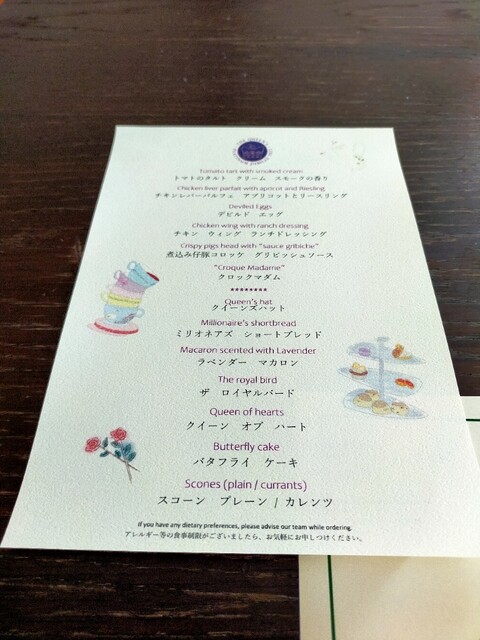 Tomato tart with smoked cream
トマトのタルト　クリーム　スモークの香り
Chicken liver parfait with apricot and Riesling
チキンレバーパルフェ　アプリコットとリースリング
Devilled Eggs
デビルド　エッグ
Chicken wing with ranch dressing
チキン　ウィング　ランチドレッシング
Crispy pigs head with "sauce gribiche"
煮込み仔豚コロッケ　グリビッシュソース
"Croque Madame"
クロックマダム
********
Queen's hat
クイーンズハット
Millionaire's shortbread
ミリオネアズ　ショートブレッド
Macaron scented with Lavender
ラベンダー　マカロン
The royal bird
ザ　ロイヤルバード
Queen of hearts
クイーン　オブ　ハート
Butterfly cake
バタフライ　ケーキ
Scones (plain / currants)
スコーン　プレーン / カレンツ
If you have any dietary preferences, please advise our team while ordering.
アレルギー等の食事制限がございましたら、お気軽にお申しつけください。